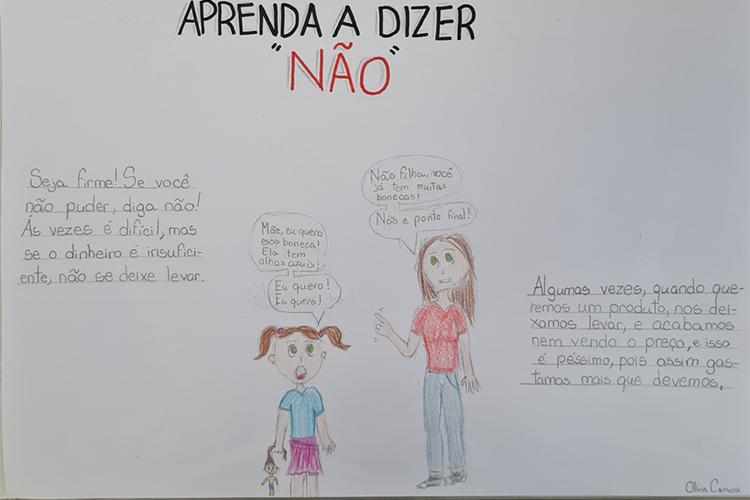 APRENDA A DIZER
"NÃO"
Seja firme! Se você
não puder, diga não!
Ás vezes é difícil, mas
se o dinheiro é insufici-
ente, não se deixe levar.
Mãe, eu quero
essa boneca!
Ela tem
olhos azuis!
Eu quero!
Eu quero!
Não filha, você
já tem muitas
bonecas!
Não e ponto final!
Algumas vezes, quando que-
remos um produto, nos dei-
xamos levar, e acabamos
nem vendo o preço, e isso
é péssimo, pois assim gas-
tamos mais que devemos.
Olívia